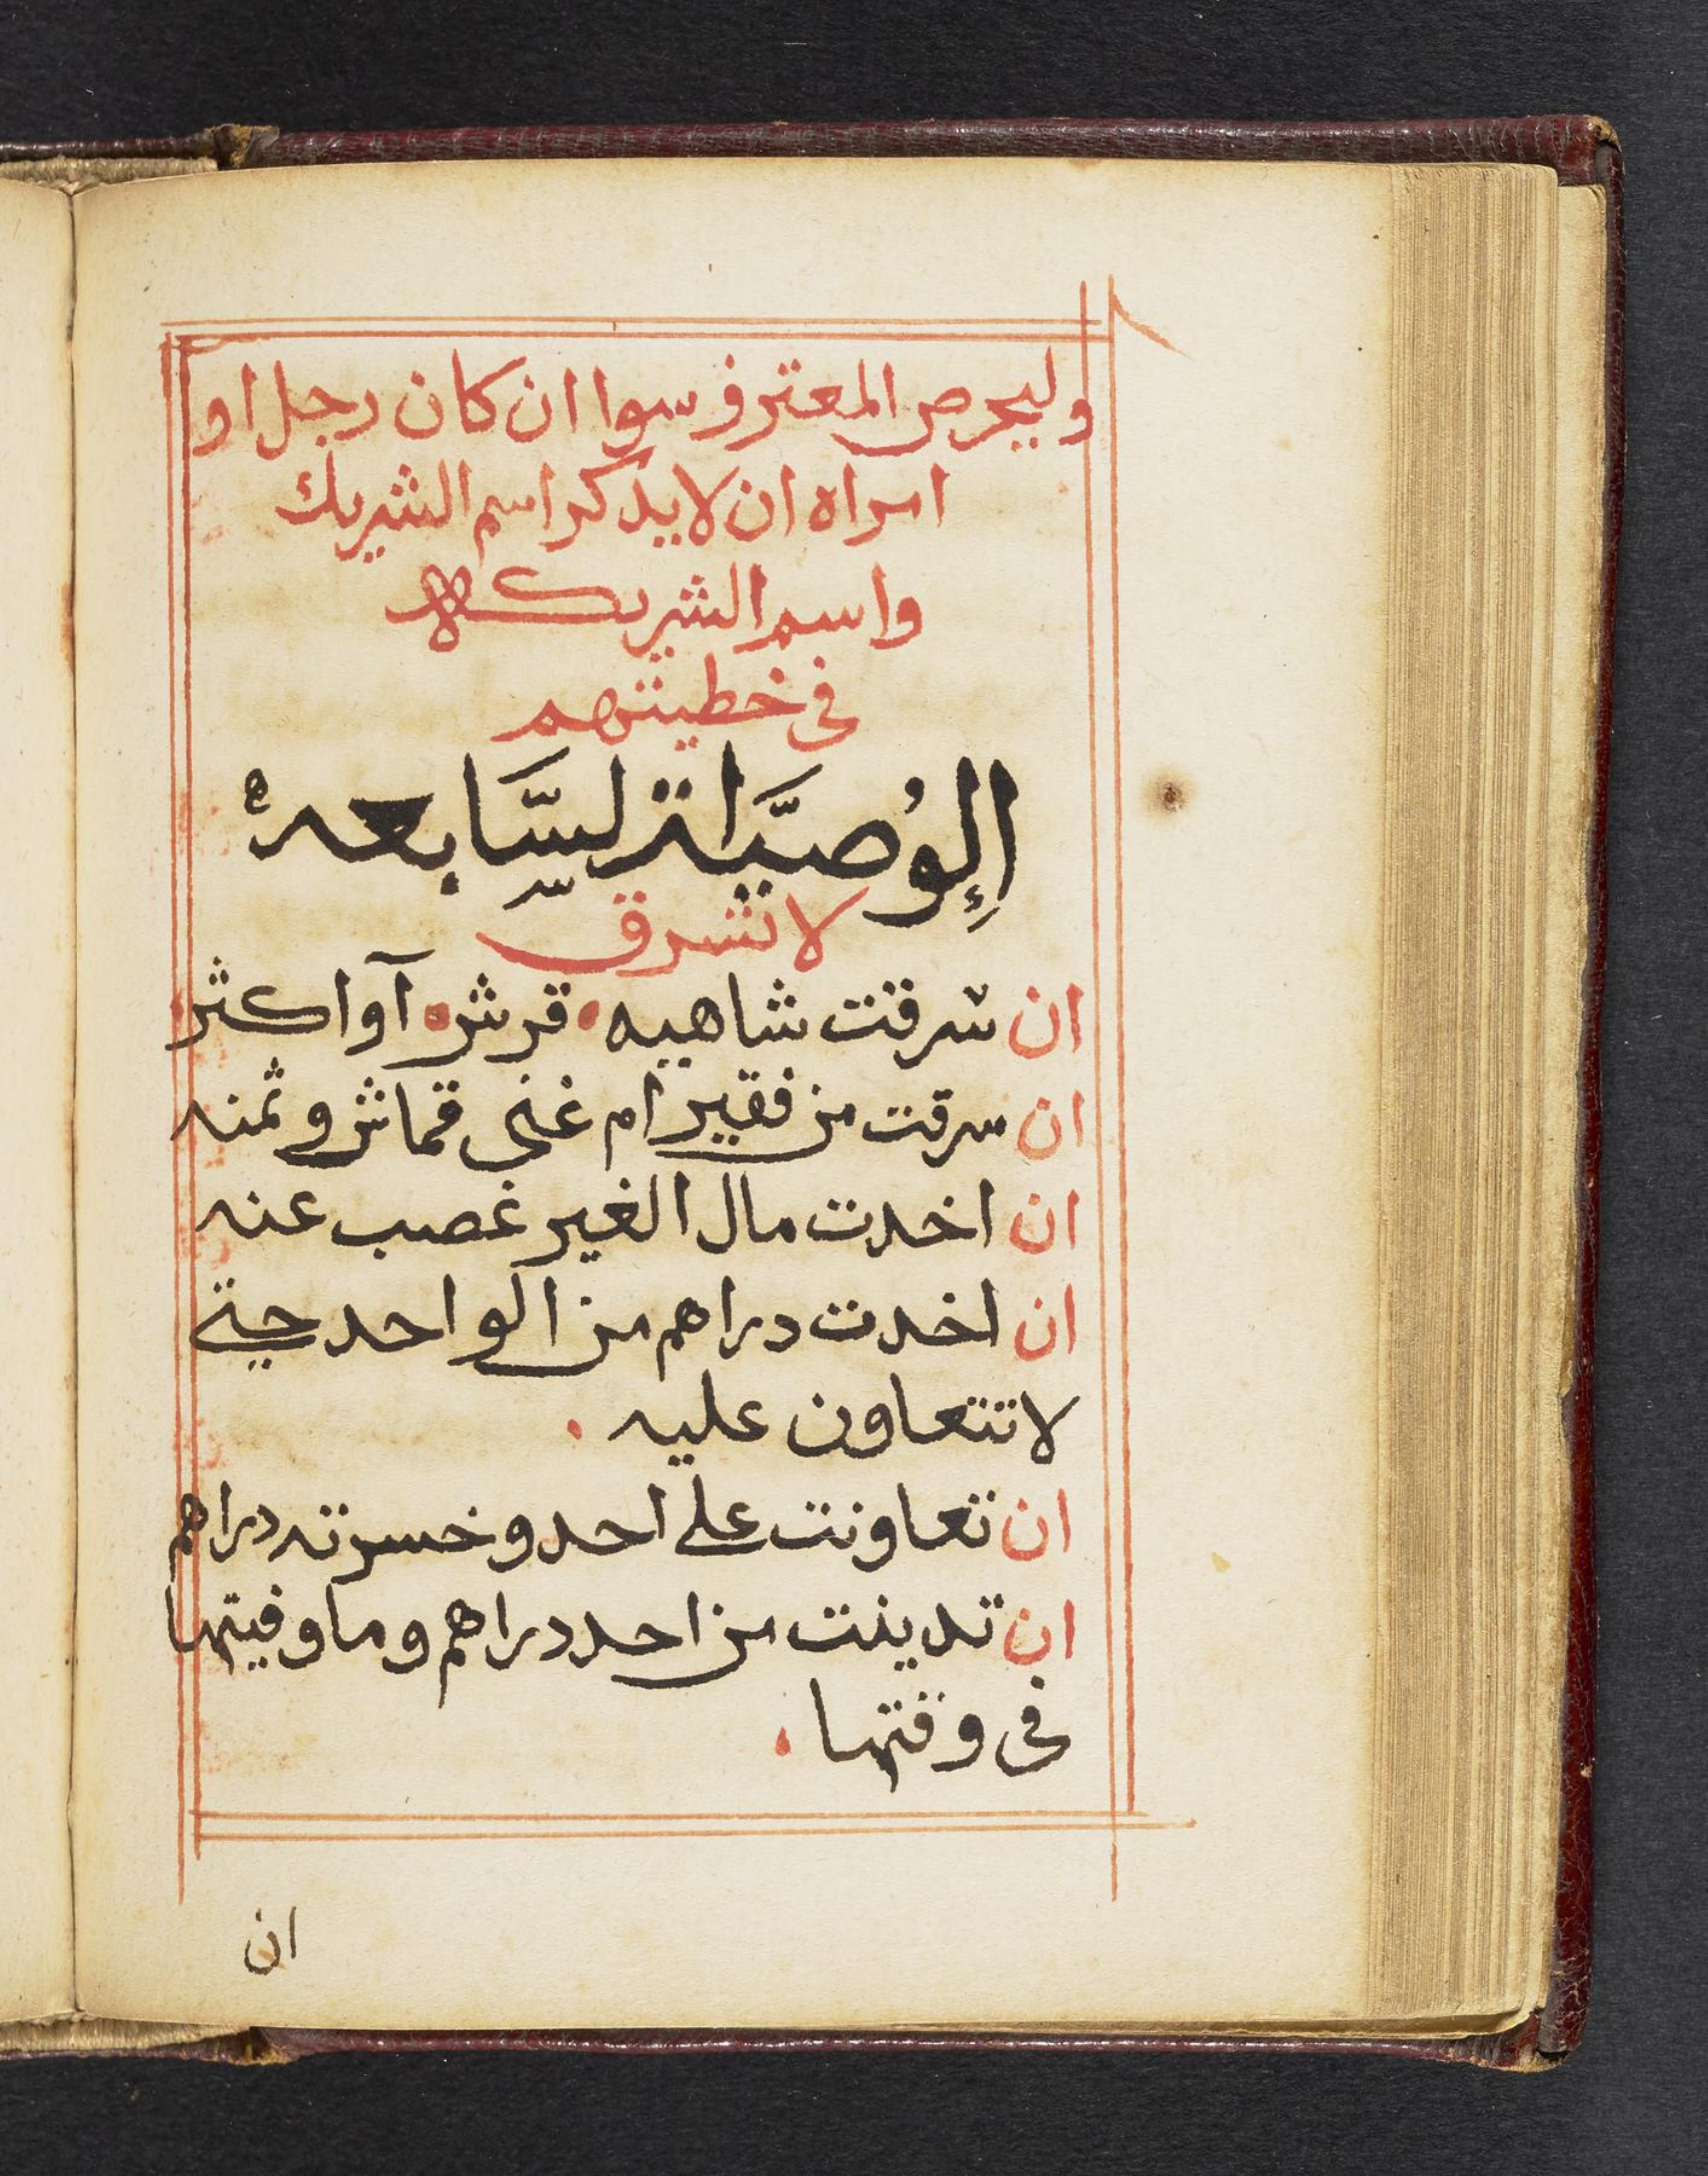 وليحرص المعترف سوا ان كان رجل او
امراه ان لا يدكر اسم الشريك
واسم الشريكه
فى خطيتهم
الوُصيَّة السَّابعه
لا تسرق
ان سرقت شاهيه • قرش • آو اكثر
ان سرقت من فقير ام غنى قماش و ثمنه
ان اخدت مال الغير غصب عنه
ان اخدت دراهم من الواحد حتى
لا تتعاون عليه •
ان تعاونت على احد و خسرته دراهم
ان تدينت من احد دراهم وما وفيتها
فى وقتها •
ان